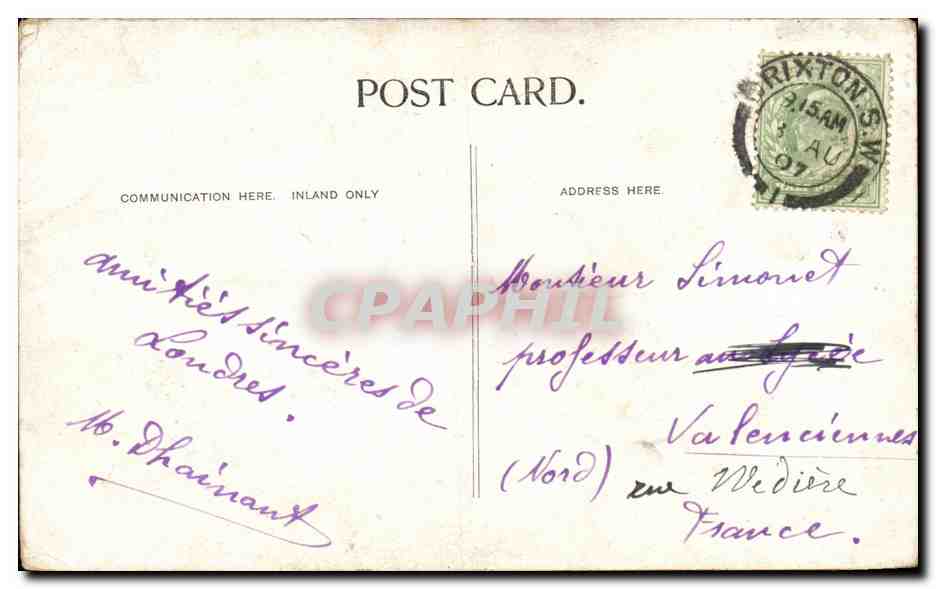 POST CARD.
BRIXTON.S.W.
9.15AM
3 AU
07
COMMUNICATION HERE. INLAND ONLY
ADDRESS HERE.
amitiés sincères de
Londres.
M. Dhainaut
Monsieur Simonet
professeur au lycée
Valenciennes
(Nord) rue Wédière
France.
CPAPHIL